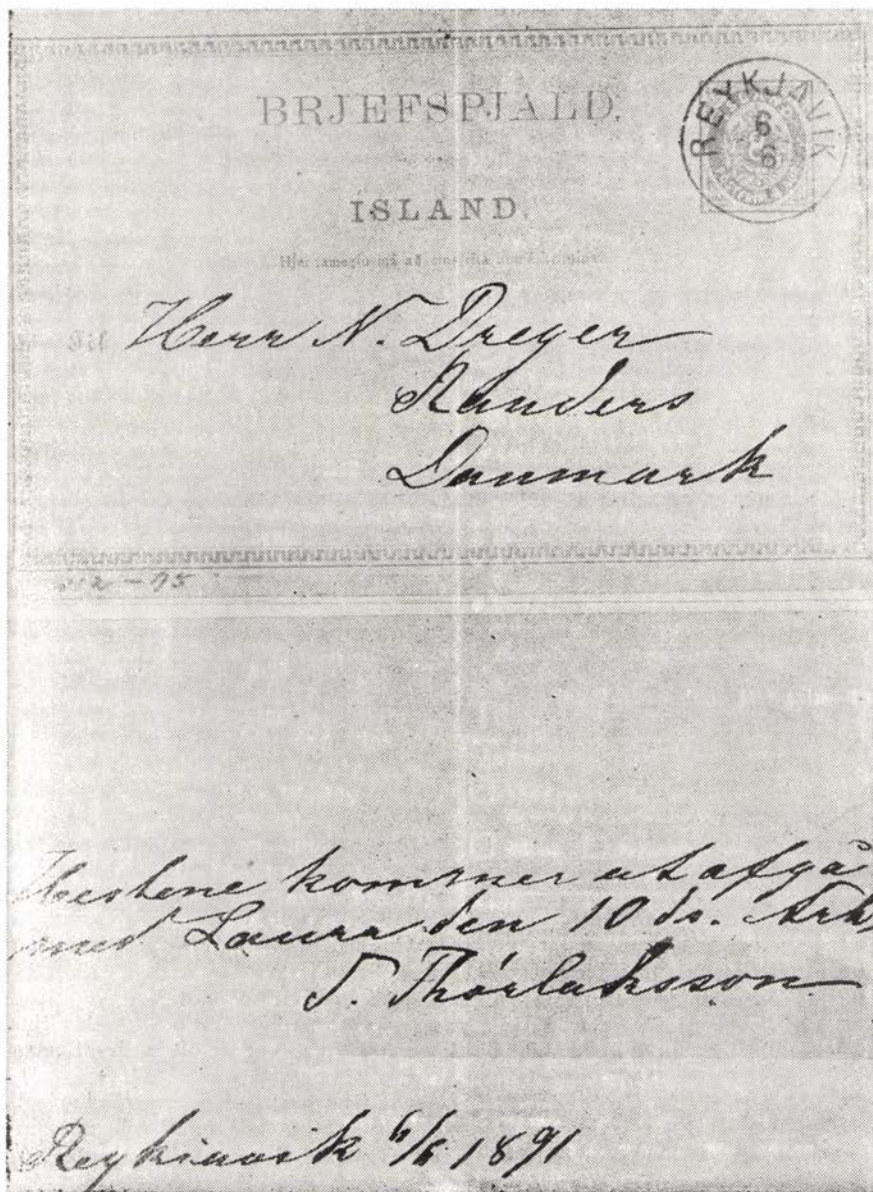 BRJEFSPJALD.
REYKJAVIK
6
6
ISLAND.
Til Herr N. Dreyer
Randers
Danmark
Hestene kommer at afgå
med Laura den 10 ds.
T. Thórlaksson
Reykiavik 6/6 1891